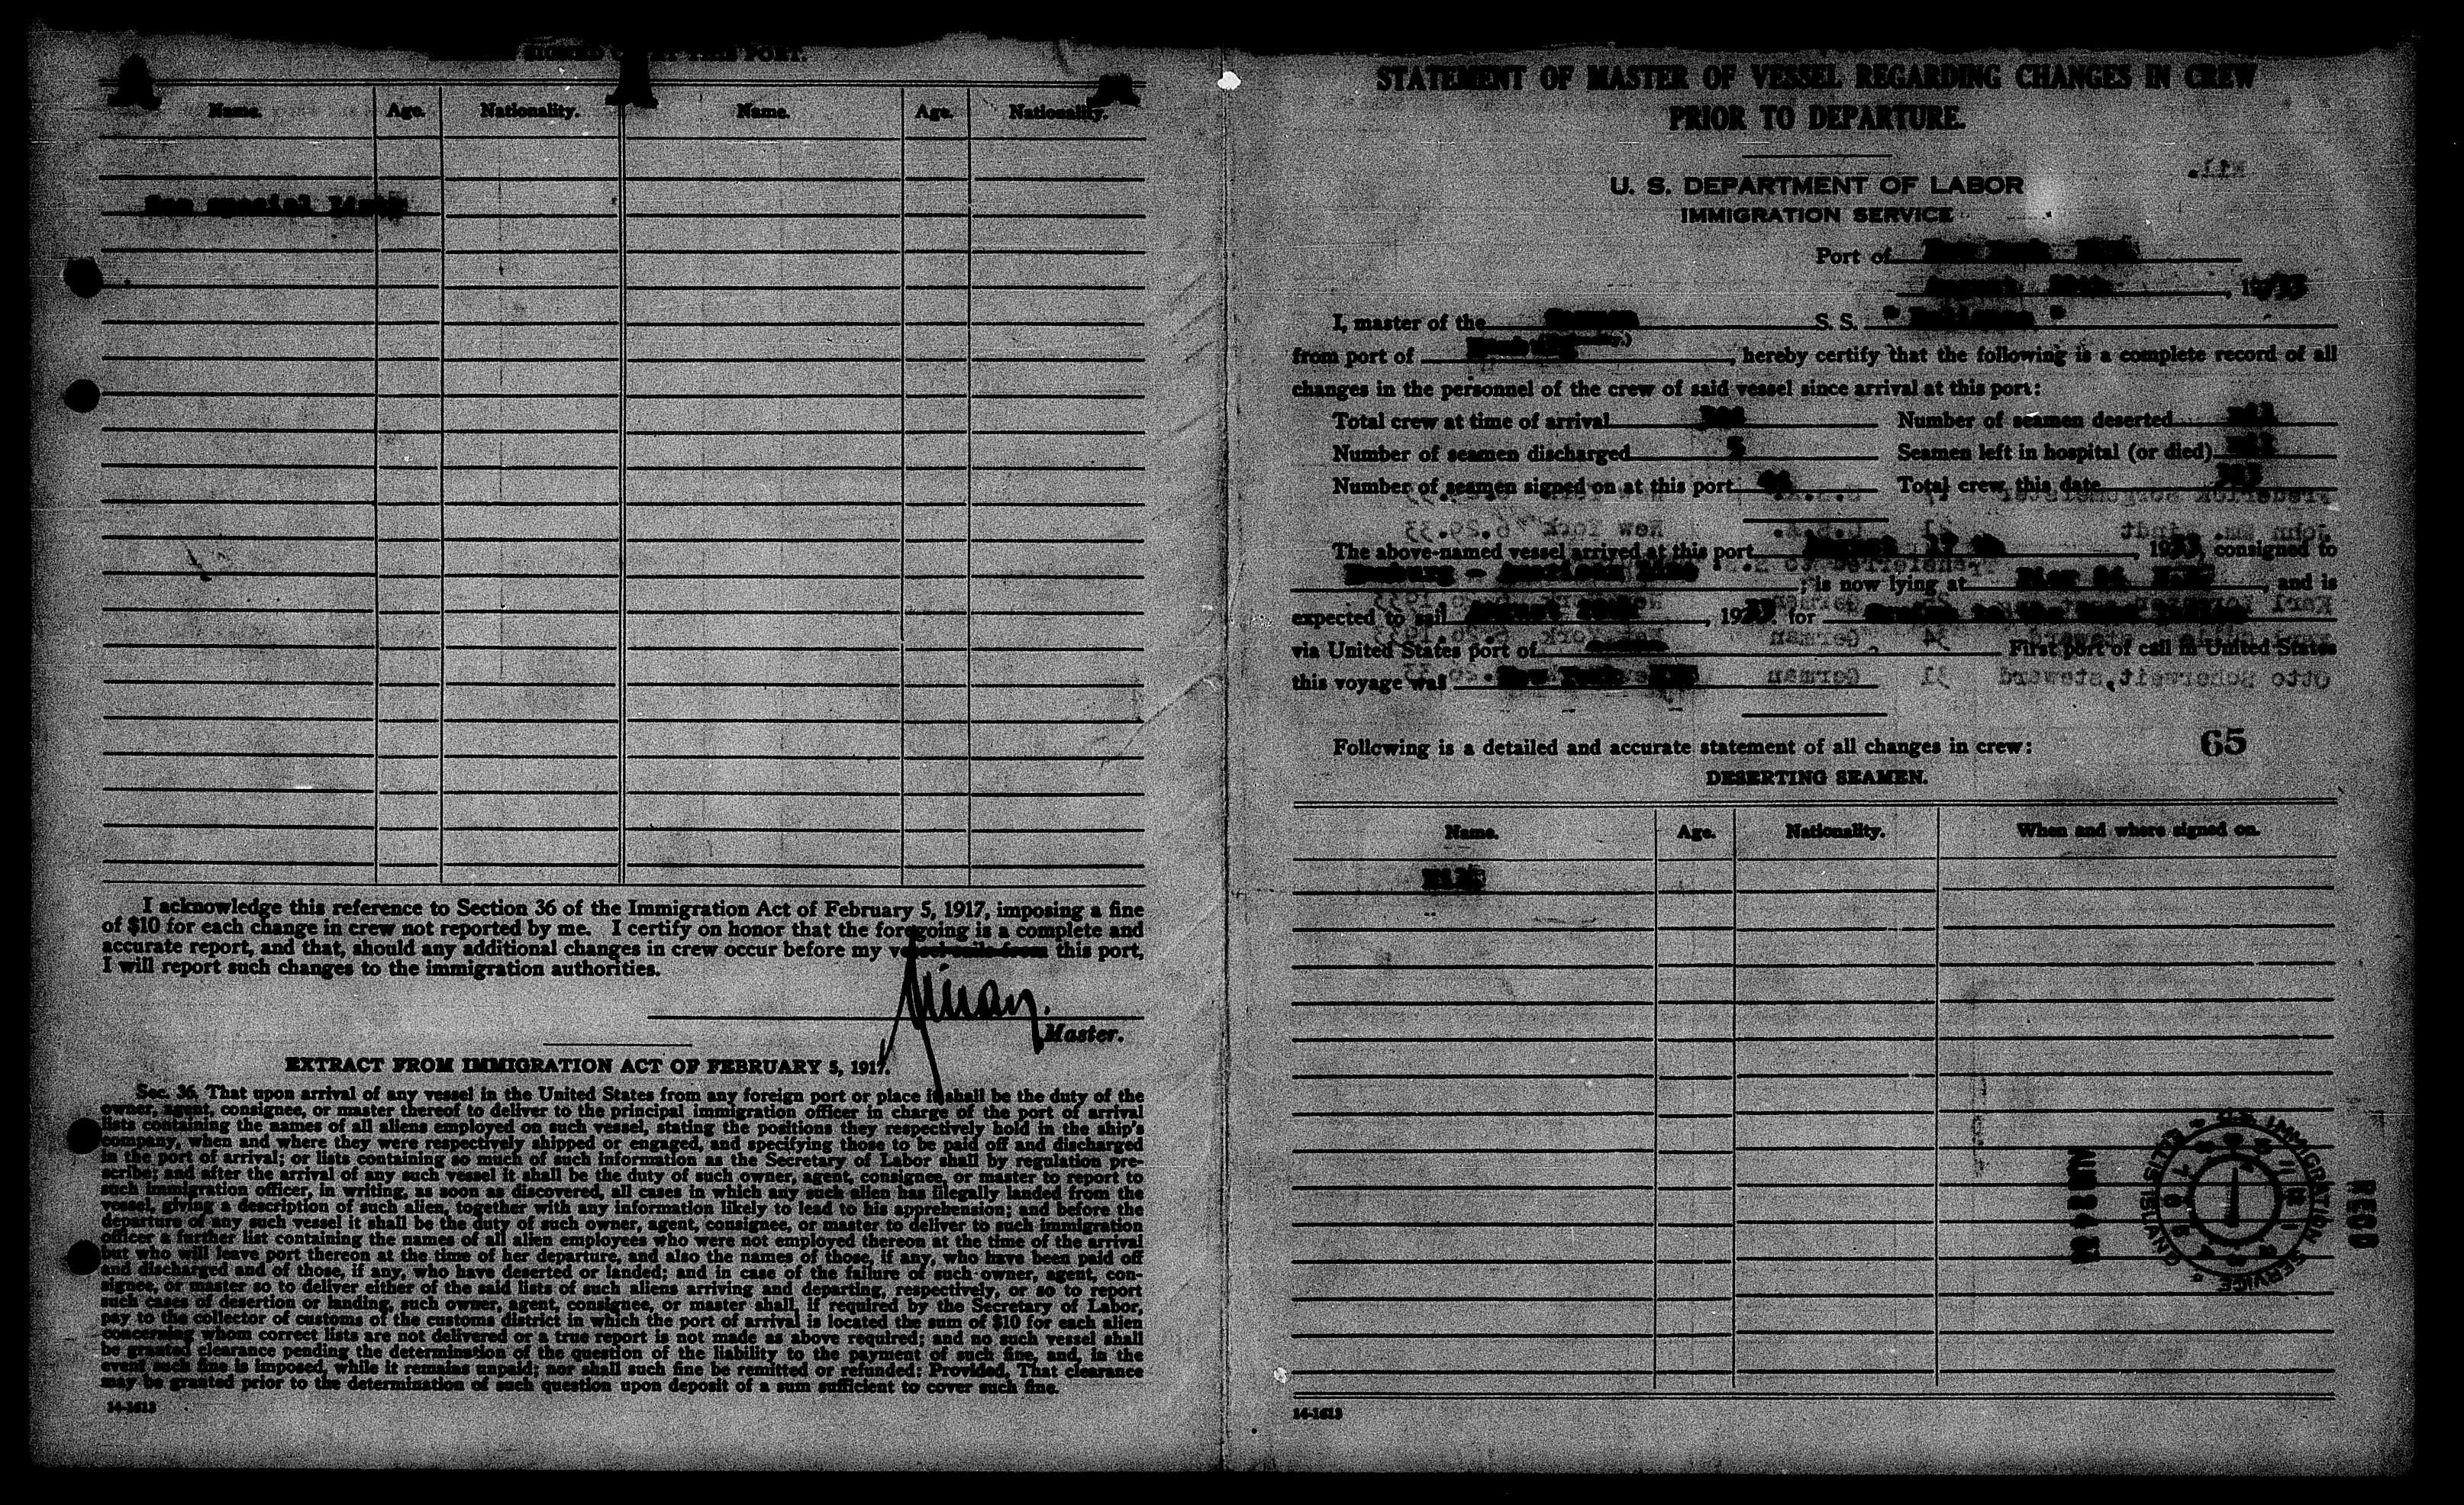 SIGNED ON AT THIS PORT.
Name. Age. Nationality. Name. Age. Nationality.
See special List
I acknowledge this reference to Section 36 of the Immigration Act of February 5, 1917, imposing a fine
of $10 for each change in crew not reported by me. I certify on honor that the foregoing is a complete and
accurate report, and that, should any additional changes in crew occur before my vessel sails from this port,
I will report such changes to the immigration authorities.
Master.
EXTRACT FROM IMMIGRATION ACT OF FEBRUARY 5, 1917.
Sec. 36. That upon arrival of any vessel in the United States from any foreign port or place it shall be the duty of the
owner, agent, consignee, or master thereof to deliver to the principal immigration officer in charge of the port of arrival
lists containing the names of all aliens employed on such vessel, stating the positions they respectively hold in the ship's
company, when and where they were respectively shipped or engaged, and specifying those to be paid off and discharged
in the port of arrival; or lists containing so much of such information as the Secretary of Labor shall by regulation pre-
scribe; and after the arrival of any such vessel it shall be the duty of such owner, agent, consignee, or master to report to
such immigration officer, in writing, as soon as discovered, all cases in which any such alien has illegally landed from the
vessel, giving a description of such alien, together with any information likely to lead to his apprehension; and before the
departure of any such vessel it shall be the duty of such owner, agent, consignee, or master to deliver to such immigration
officer a further list containing the names of all alien employees who were not employed thereon at the time of the arrival
but who will leave port thereon at the time of her departure, and also the names of those, if any, who have been paid off
and discharged and of those, if any, who have deserted or landed; and in case of the failure of such owner, agent, con-
signee, or master so to deliver either of the said lists of such aliens arriving and departing, respectively, or so to report
such cases of desertion or landing, such owner, agent, consignee, or master shall, if required by the Secretary of Labor,
pay to the collector of customs of the customs district in which the port of arrival is located the sum of $10 for each alien
concerning whom correct lists are not delivered or a true report is not made as above required; and no such vessel shall
be granted clearance pending the determination of the question of the liability to the payment of such fine, and, in the
event such fine is imposed, while it remains unpaid; nor shall such fine be remitted or refunded: Provided, That clearance
may be granted prior to the determination of such question upon deposit of a sum sufficient to cover such fine.
14-1613
STATEMENT OF MASTER OF VESSEL REGARDING CHANGES IN CREW
PRIOR TO DEPARTURE.
U. S. DEPARTMENT OF LABOR
IMMIGRATION SERVICE
Port of New York
August , 1933
I, master of the German S. S.
from port of , hereby certify that the following is a complete record of all
changes in the personnel of the crew of said vessel since arrival at this port:
Total crew at time of arrival Number of seamen deserted nil
Number of seamen discharged 5 Seamen left in hospital (or died) nil
Number of seamen signed on at this port Total crew this date
The above-named vessel arrived at this port August , 1933, consigned to
Hamburg - American Line ; is now lying at Pier 84 , and is
expected to sail August , 1933. for
via United States port of First port of call in United States
this voyage was New York
Following is a detailed and accurate statement of all changes in crew: 65
DESERTING SEAMEN.
Name. Age. Nationality. When and where signed on.
Nil
U.S. IMMIGRATION SERVICE ELLIS ISLAND
REC'D
AUG 24
14-1613